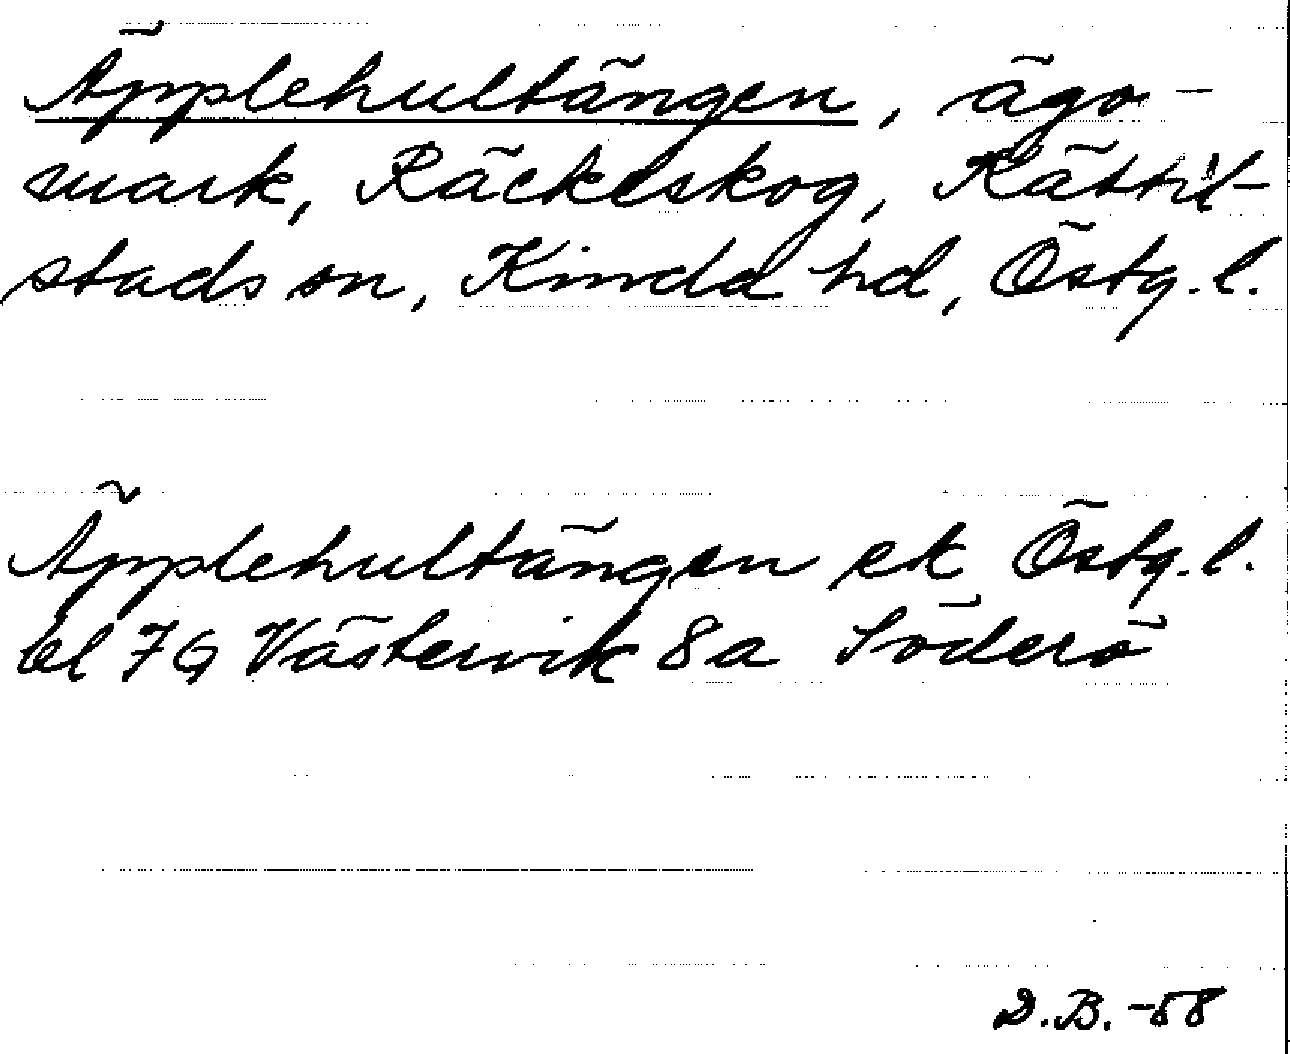 Äpplehultängen, ägo-
mark, Räckeskog, Kättil-
stads sn, Kinda hd, Östg.l.
Äpplehultängen ek Östg.l.
bl 7G Västervik 8a Söderö
D.B. -58